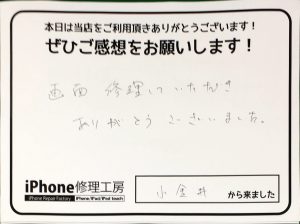 本日は当店をご利用頂きありがとうございます！
ぜひご感想をお願いします！
画面 修理していただき
ありがとう ございいました。
iPhone修理工房
iPhone Repair Factory iPhone/iPad/iPod touch
小金井 から来ました